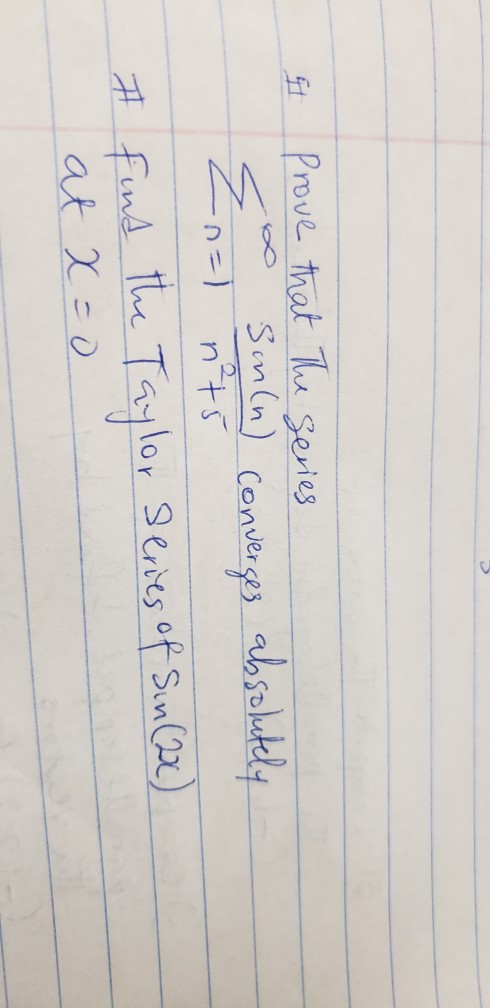 # Prove that The series
∑_{n=1}^{∞} Sin(n)/(n²+5) converges absolutely
# find the Taylor Series of Sin(2x)
at x = 0